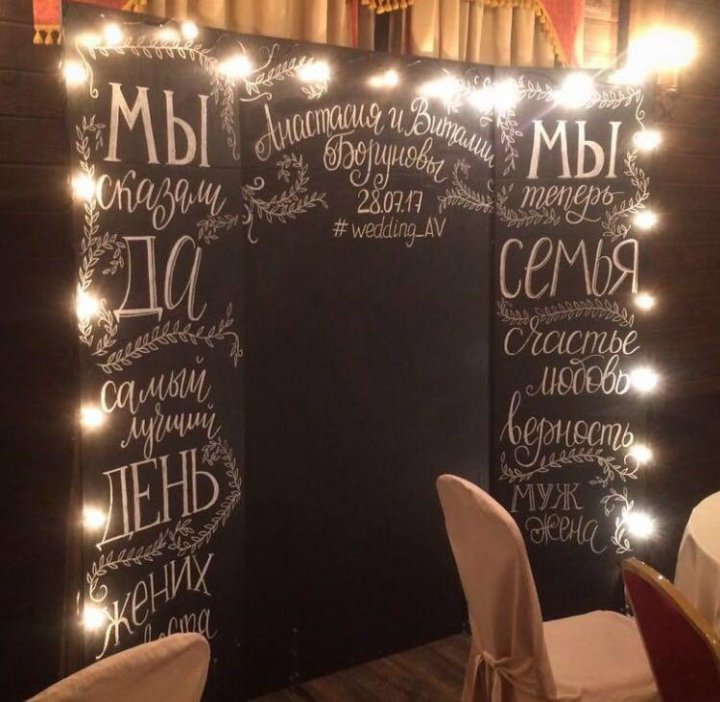 Мы
сказали
Да
самый
лучший
День
Жених
Анастасия и Виталий
Боруновы
28.07.17
#wedding_AV
Мы
теперь
Семья
счастье
любовь
верность
муж
жена